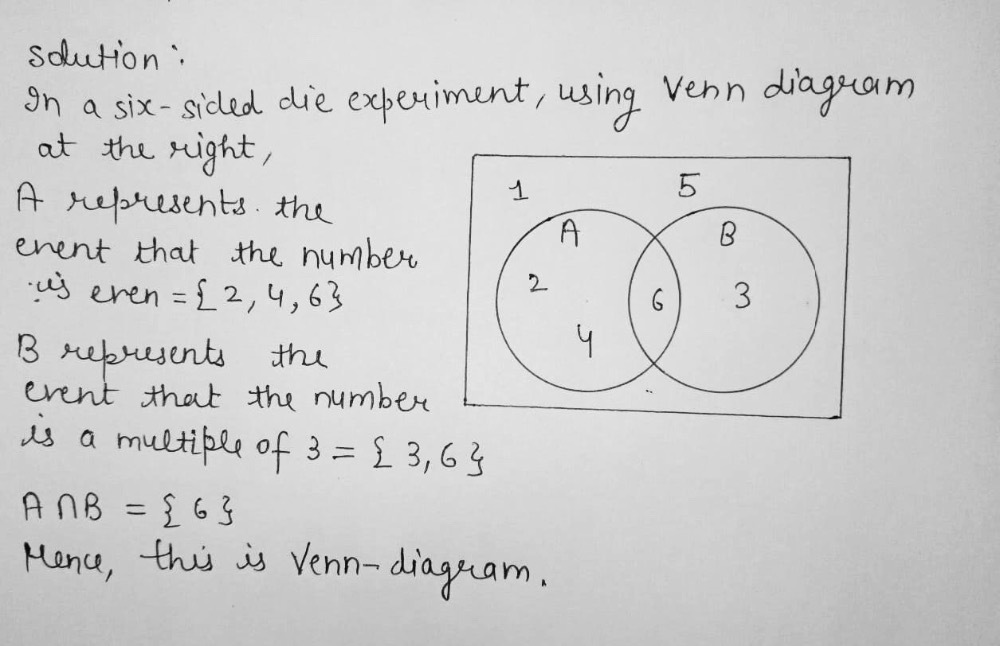 Solution:
In a six-sided die experiment, using Venn diagram
at the right,
A represents the
event that the number
is even = {2, 4, 6}
B represents the
event that the number
is a multiple of 3 = {3, 6}
A∩B = {6}
Hence, this is Venn-diagram.
1 5
A B
2 6 3
4